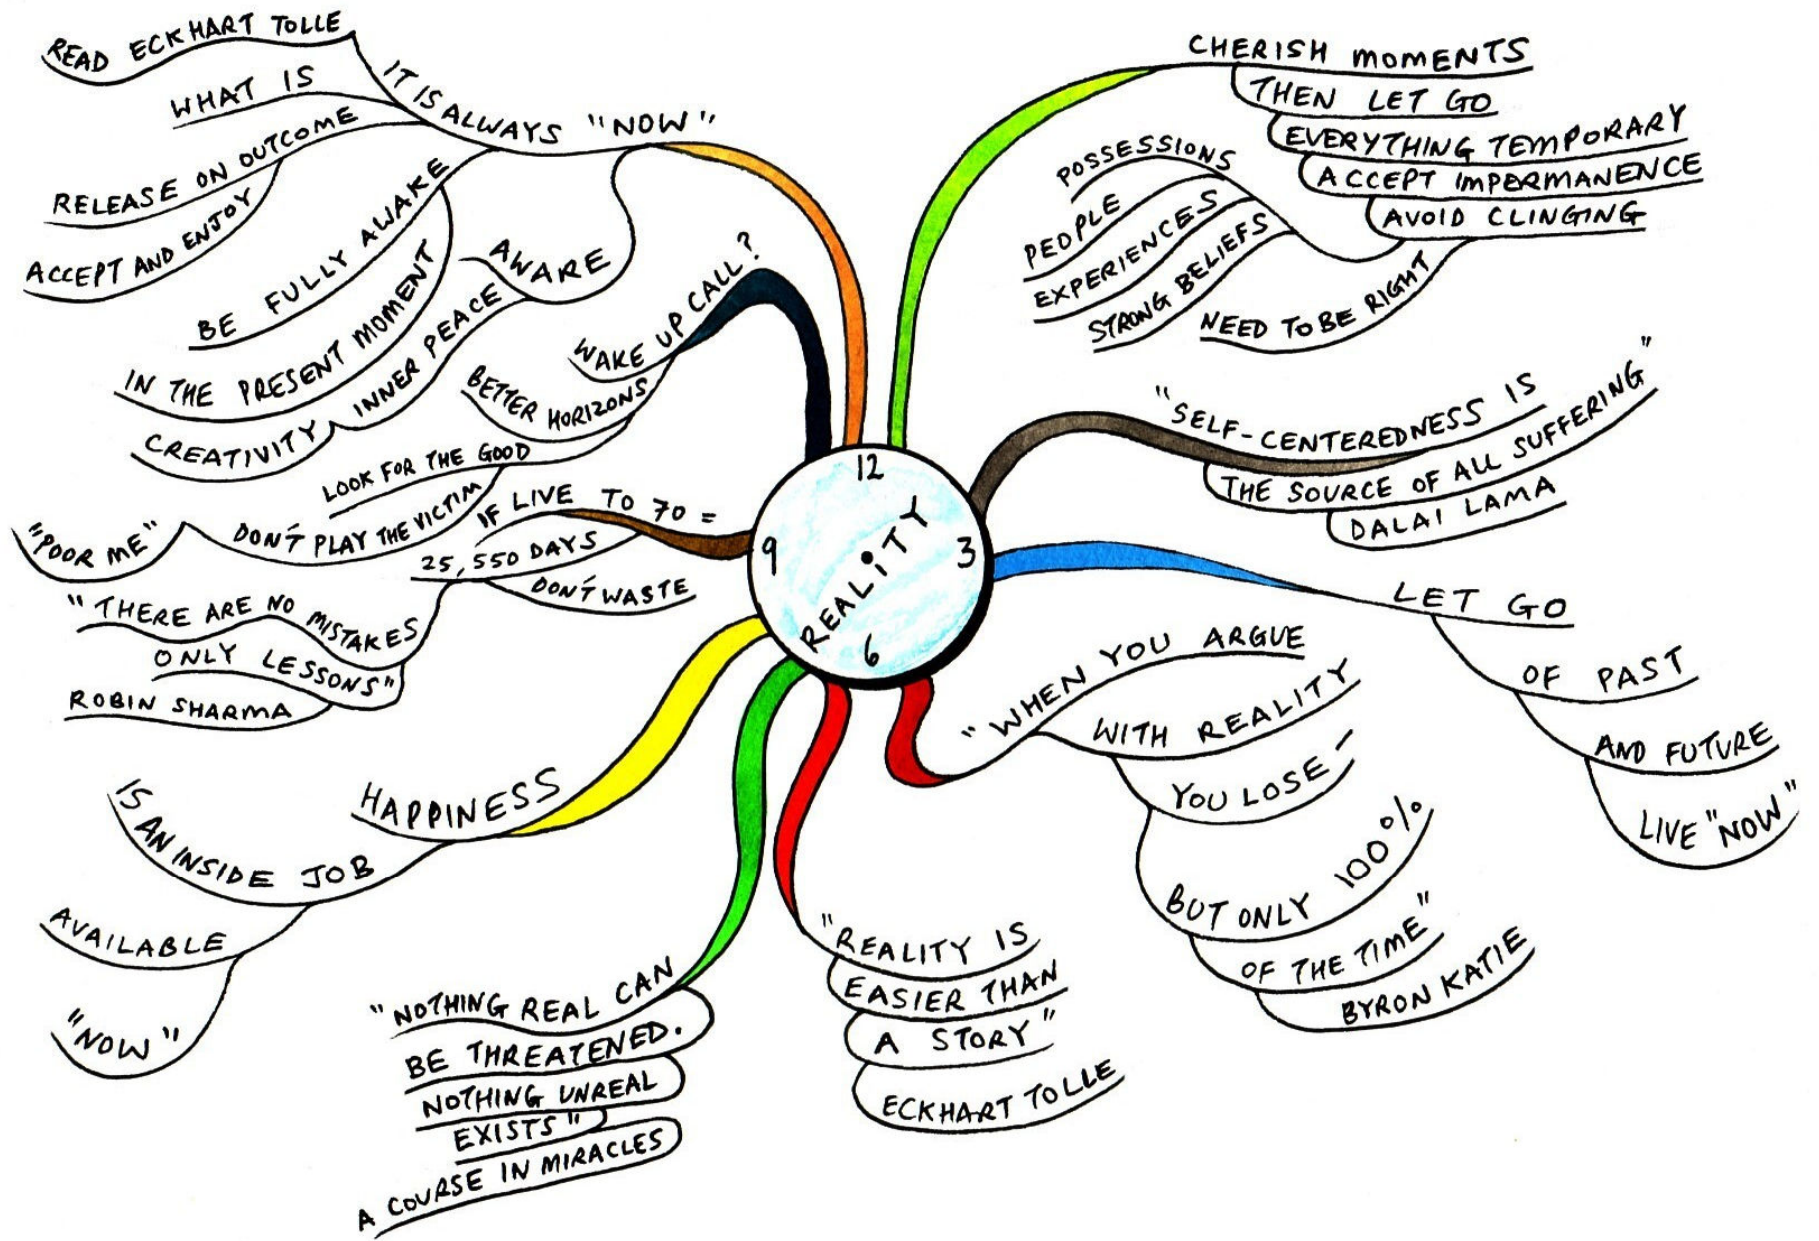 12
3
6
9
REALITY
CHERISH MOMENTS
THEN LET GO
EVERYTHING TEMPORARY
ACCEPT IMPERMANENCE
AVOID CLINGING
POSSESSIONS
PEOPLE
EXPERIENCES
STRONG BELIEFS
NEED TO BE RIGHT
"SELF-CENTEREDNESS IS
THE SOURCE OF ALL SUFFERING"
DALAI LAMA
LET GO
OF PAST
AND FUTURE
LIVE "NOW"
"WHEN YOU ARGUE
WITH REALITY
YOU LOSE -
BUT ONLY 100%
OF THE TIME"
BYRON KATIE
"REALITY IS
EASIER THAN
A STORY"
ECKHART TOLLE
"NOTHING REAL CAN
BE THREATENED.
NOTHING UNREAL
EXISTS"
A COURSE IN MIRACLES
HAPPINESS
IS AN INSIDE JOB
AVAILABLE
"NOW"
IF LIVE TO 70 =
25,550 DAYS
DON'T WASTE
"THERE ARE NO MISTAKES
ONLY LESSONS"
ROBIN SHARMA
WAKE UP CALL?
BETTER HORIZONS
LOOK FOR THE GOOD
DON'T PLAY THE VICTIM
"POOR ME"
IT IS ALWAYS "NOW"
READ ECKHART TOLLE
WHAT IS
RELEASE ON OUTCOME
ACCEPT AND ENJOY
BE FULLY AWAKE
IN THE PRESENT MOMENT
AWARE
INNER PEACE
CREATIVITY